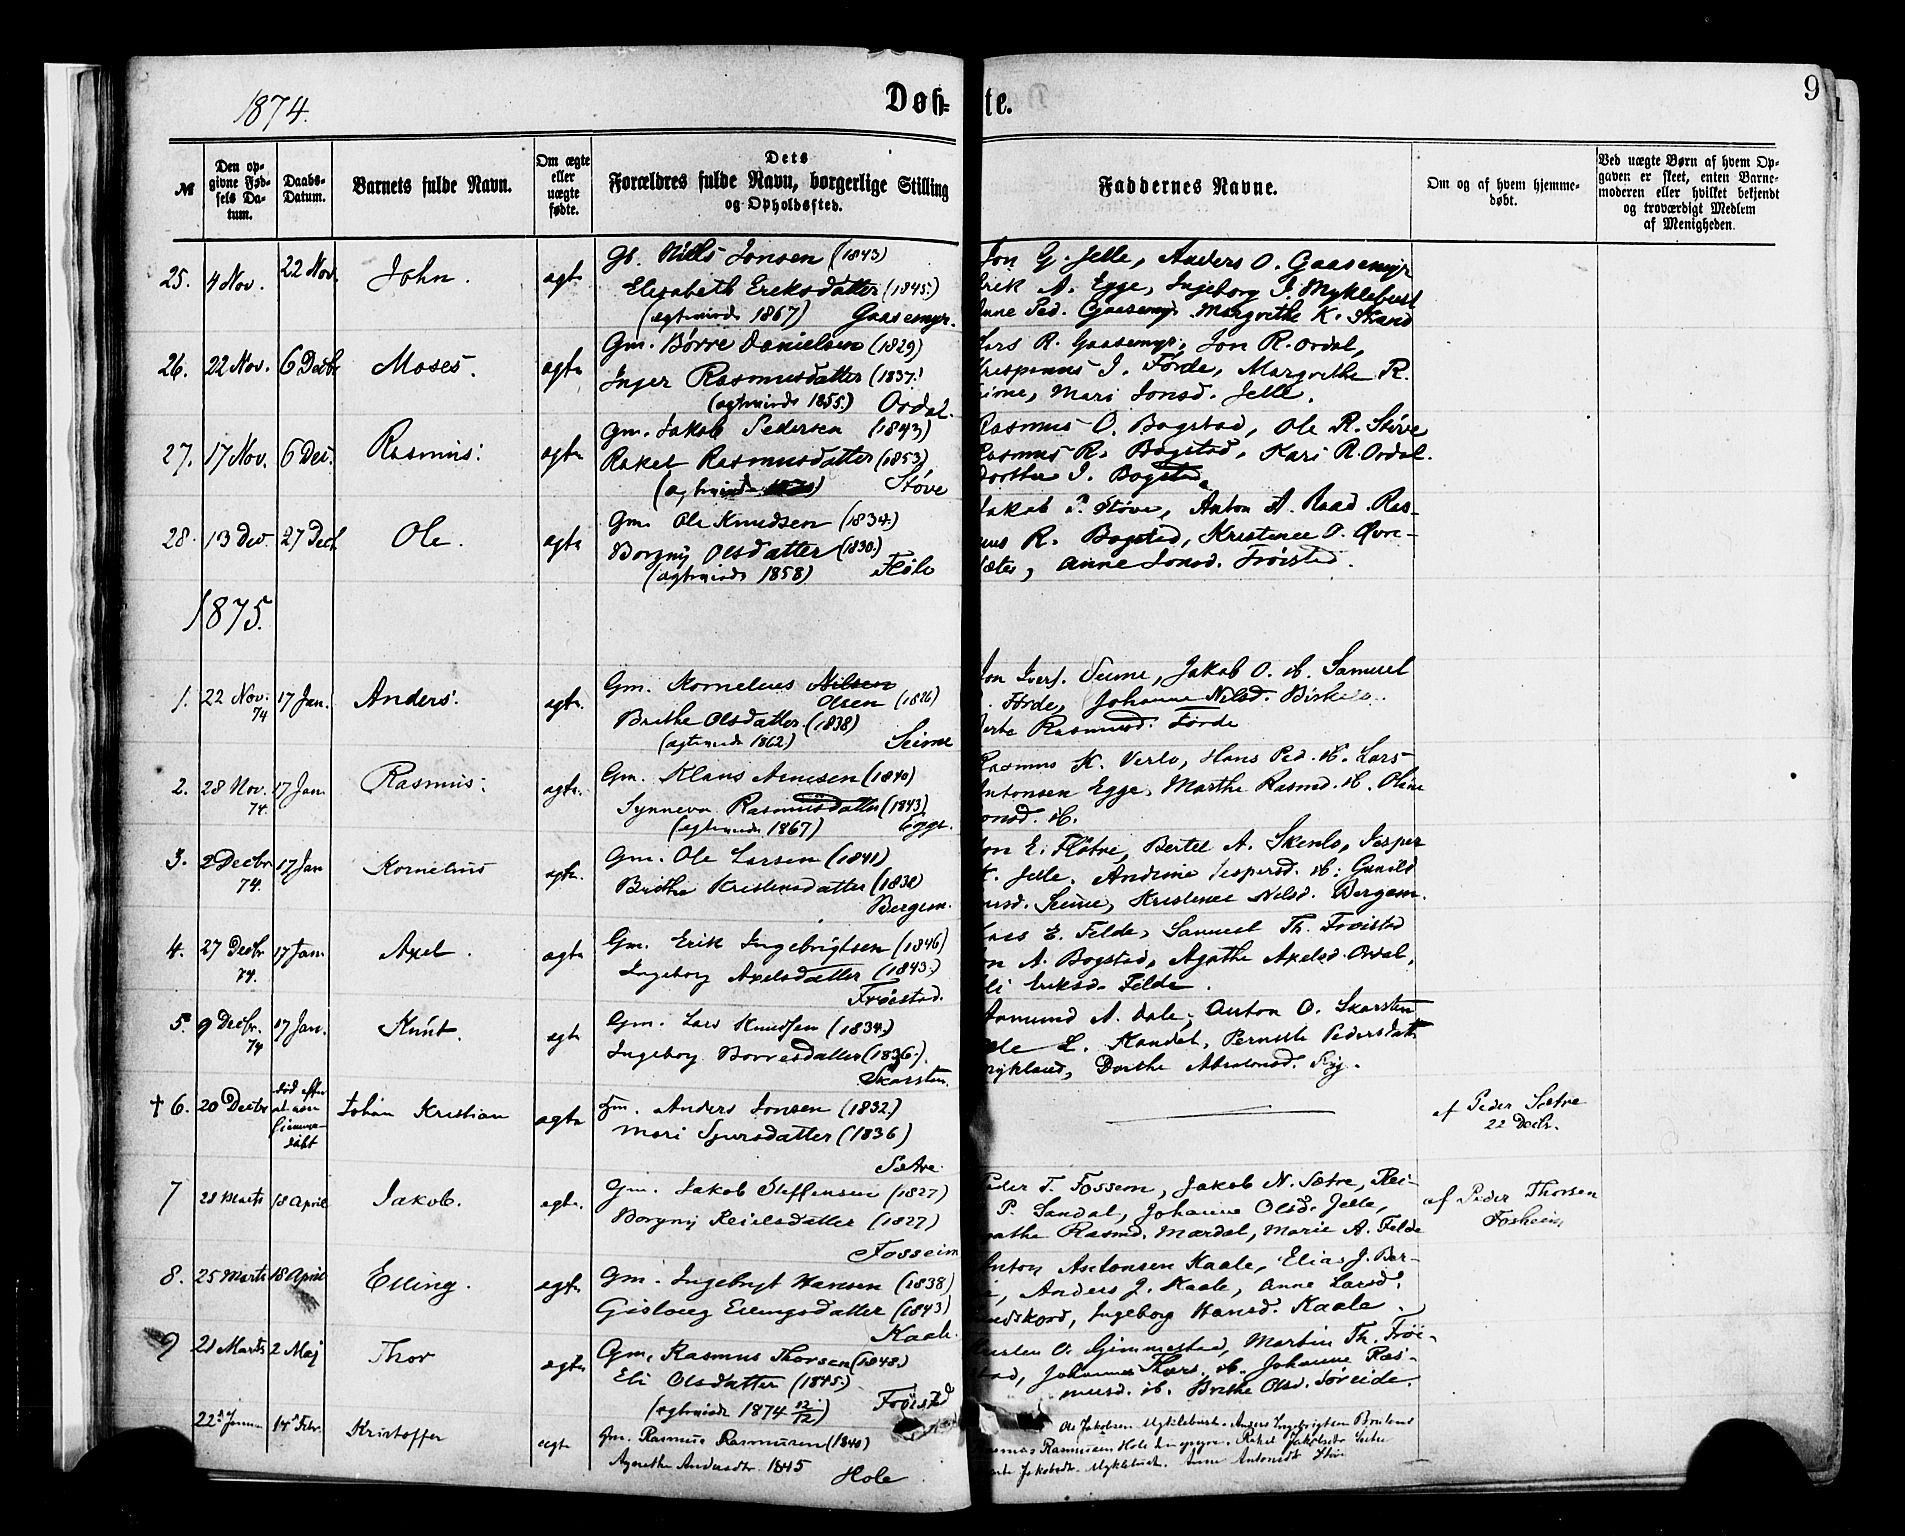 1874.
Døb-
te.
9
№
Den opgivne Fødsels Datum.
Daabs-Datum.
Barnets fulde Navn.
Om ægte eller uægte fødte.
Dets Forældres fulde Navn, borgerlige Stilling og Opholdssted.
Faddernes Navne.
Om og af hvem hjemmedøbt.
Ved uægte Børn af hvem Opgaven er skeet, enten Barnemoderen eller hvilket bekjendt og troværdigt Medlem af Menigheden.
25. 4 Nov. 22 Nov. John. ægte
Gb. Nills Jonsen (1843)
Elisabeth Eriksdatter (1845)
(ægtevirdr 1867) Gaasemyr.
Jon G. Jelle, Anders O. Gaasemyr
Erik A. Egge, Ingeborg I. Myklebust
Anne Ped. Gaasemyr. Margrethe K. Strand
26. 22 Nov. 6 Decbr Moses. ægte
Gm. Børre Danielsen (1829)
Inger Rasmusdatter (1837)
(ægtevirdr 1855.) Ordal.
Lars R. Gaasemyr, Jon R. Ordal,
I. Førde, Margrethe R.
Seime, Mari Jonsd. Jelle.
27. 17 Nov. 6 Dec. Rasmus. ægte
Gm. Jakob Pedersen (1843)
Rakel Rasmusdatter (1853)
Støve
Rasmus O. Bogstad, Ole R. Støve
Rasmus R. Bogstad, Kari R. Ordal.
Dorthe I. Bogstad.
28. 13 Dec. 27 Dec. Ole. ægte
Gm. Ole Knudsen (1834.)
Borgny Olsdatter (1830.)
(ægtevirdr 1858) Hole
Jakob P. Støve, Anton A. Raad. Ras-
mus R. Bogstad, Kristence O. Øvre-
sætes, Anne Jonsd. Frøistad.
1875.
1. 22 Nov. 74 17 Jan. Anders. ægte
Gm. Kornelius Nilsen
Olsen (1826)
Brithe Olsdatter (1838)
(ægtevirdr 1862) Seime
Jon Ivers. Seime, Jakob O. ib. Samuel
Førde, Johanne Nilsd. Birkelo.
Berte Rasmusd. Førde
2. 28 Nov. 74. 17 Jan. Rasmus. ægte.
Gm. Klaus Arnesen (1840)
Synneva Rasmusdatter (1843)
(ægtevirdr 1867) Egge.
Rasmus K. Verlo, Hans Ped. ib. Lars
Antonsen Egge, Marthe Rasmd. ib. Oline
Jonsd. ib.
3. 2 Decbr 74. 17 Jan Kornelius ægte.
Gm. Ole Larsen (1841)
Brithe Kristensdatter (1838)
Bergem.
Jon E. Fløtre, Bertel A. Skenlo, Jesper
K. Jelle, Andrine Jespersd. ib. Gunild
Seime, Kristence Nilsd. Bergem.
4. 27 Decbr 74. 17 Jan. Axel. ægte
Gm. Erik Ingebrigtsen (1846)
Ingeborg Axelsdatter (1843.)
Frøistad.
Lars E. Felde, Samuel Th. Frøistad
Jon A. Bogstad, Agathe Axelsd. Ordal,
Eli Eriksd. Felde.
5. 9 Decbr. 74 17 Jan. Knut. ægte
Gm. Lars Knudsen (1834.)
Ingeborg Børresdatter (1836.)
Skarsten.
Amund A. Dale, Anton O. Skarsten
Ole L. Kandal, Pernille Pedersdatt.
Mykland, Dorthe Absalonsd. Ryg.
† 6. 20 Decbr død efter at være hjemmedøbt Johan Kristian ægte
Gm. Anders Jonsen (1832.)
Mari Sjursdatter (1836)
Sætre.
af Peder Sætre
22 Decbr.
7 28 Marts 18 April Jakob. ægte.
Gm. Jakob Steffensen (1827)
Borgny Reielsdatter (1827)
Fosseim
Peder T. Fossem, Jakob N. Sætre, Rei-
P. Sandal, Johanne Olsd. Jelle,
Agathe Rasmd. Mardal, Marie A. Felde
af Peder Thorsen
Fosheim
8. 25 Marts 18 April Elling. ægte
Gm. Ingebrygt Hansen (1838)
Gislaug Ellingsdatter (1843)
Kaale.
Anton Antonsen Kaale, Elias J. Ber-
Anders J. Kaale, Anne Larsd.
Ingeborg Hansd. Kaale.
9 21 Marts 2 Maj Thor ægte
Gm. Rasmus Thorsen (1848)
Eli Olsdatter (1845.)
(ægtevirdr 1874 12/12) Frøistad
O. Gimmestad, Martin Th. Frøi-
stad, Johannes Thors. ib. Johanne Ras-
musd. ib. Brithe Olsd. Søreide.
22 Januar 14 Febr. Kristoffer ægte
Gm. Rasmus Rasmusen (1840)
Agnethe Andersdtr. 1845 Hole
Ole Jakobsen Myklebust. Anders Ingebrigtsen
Rasmus Rasmusen Hole Rakel Jakobsdtr
Jakobsdtr. Myklebust. Anne Antonsdtr Støve